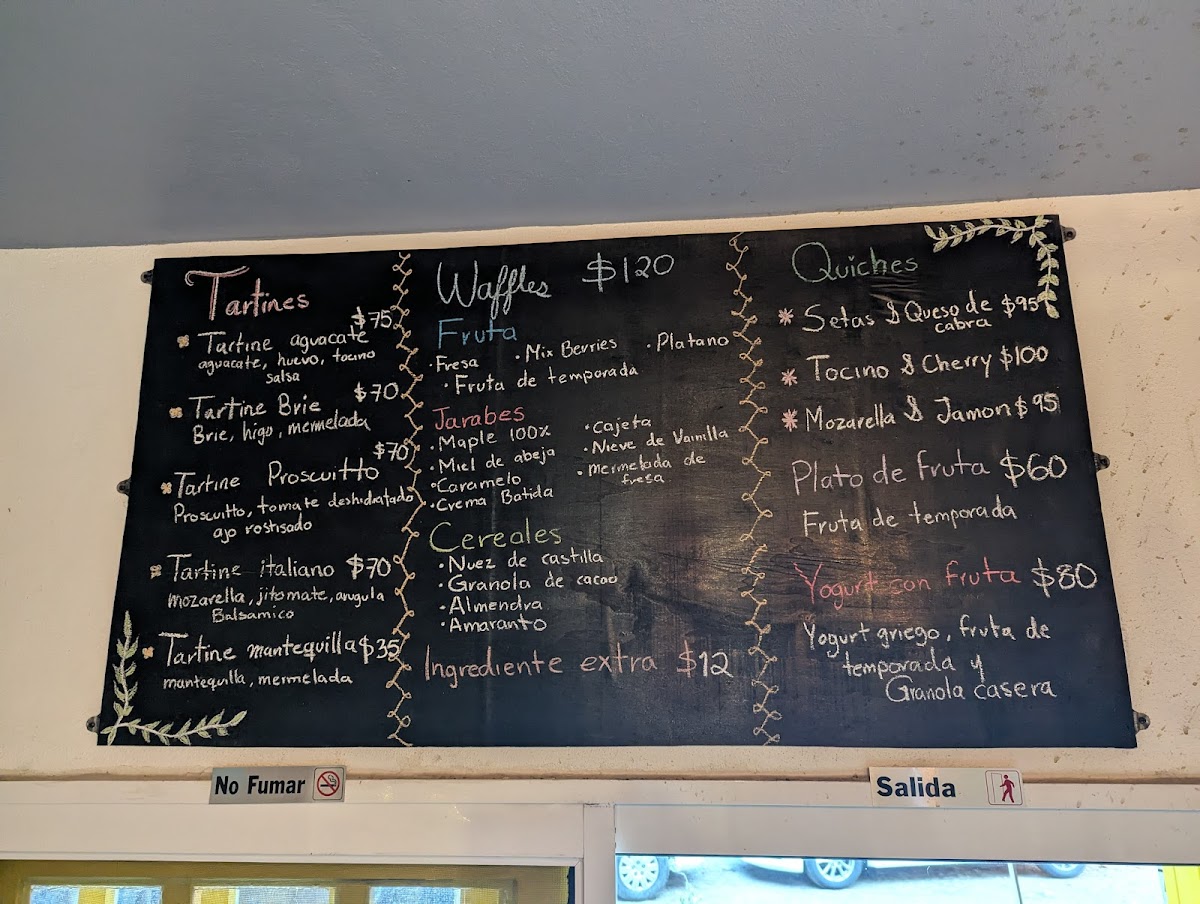 Tartines
$75
Tartine aguacate
aguacate, huevo, tocino
salsa
$70
Tartine Brie
Brie, higo, mermelada
$70
Tartine Proscuitto
Proscuitto, tomate deshidratado
ajo rostisado
Tartine italiano $70
mozarella, jitomate, angula
Balsamico
Tartine mantequilla $35
mantequilla, mermelada
Waffles $120
Fruta
· Fresa · Mix Berries · Platano
· Fruta de temporada
Jarabes
· Maple 100%
· Miel de abeja
· Caramelo
· Crema Batida
· Cajeta
· Nieve de Vainilla
· mermelada de
fresa
Cereales
· Nuez de castilla
· Granola de cacao
· Almendra
· Amaranto
Ingrediente extra $12
Quiches
* Setas & Queso de $95
cabra
* Tocino & Cherry $100
* Mozarella & Jamon $95
Plato de fruta $60
Fruta de temporada
Yogurt con fruta $80
Yogurt griego, fruta de
temporada y
Granola casera
No Fumar
Salida